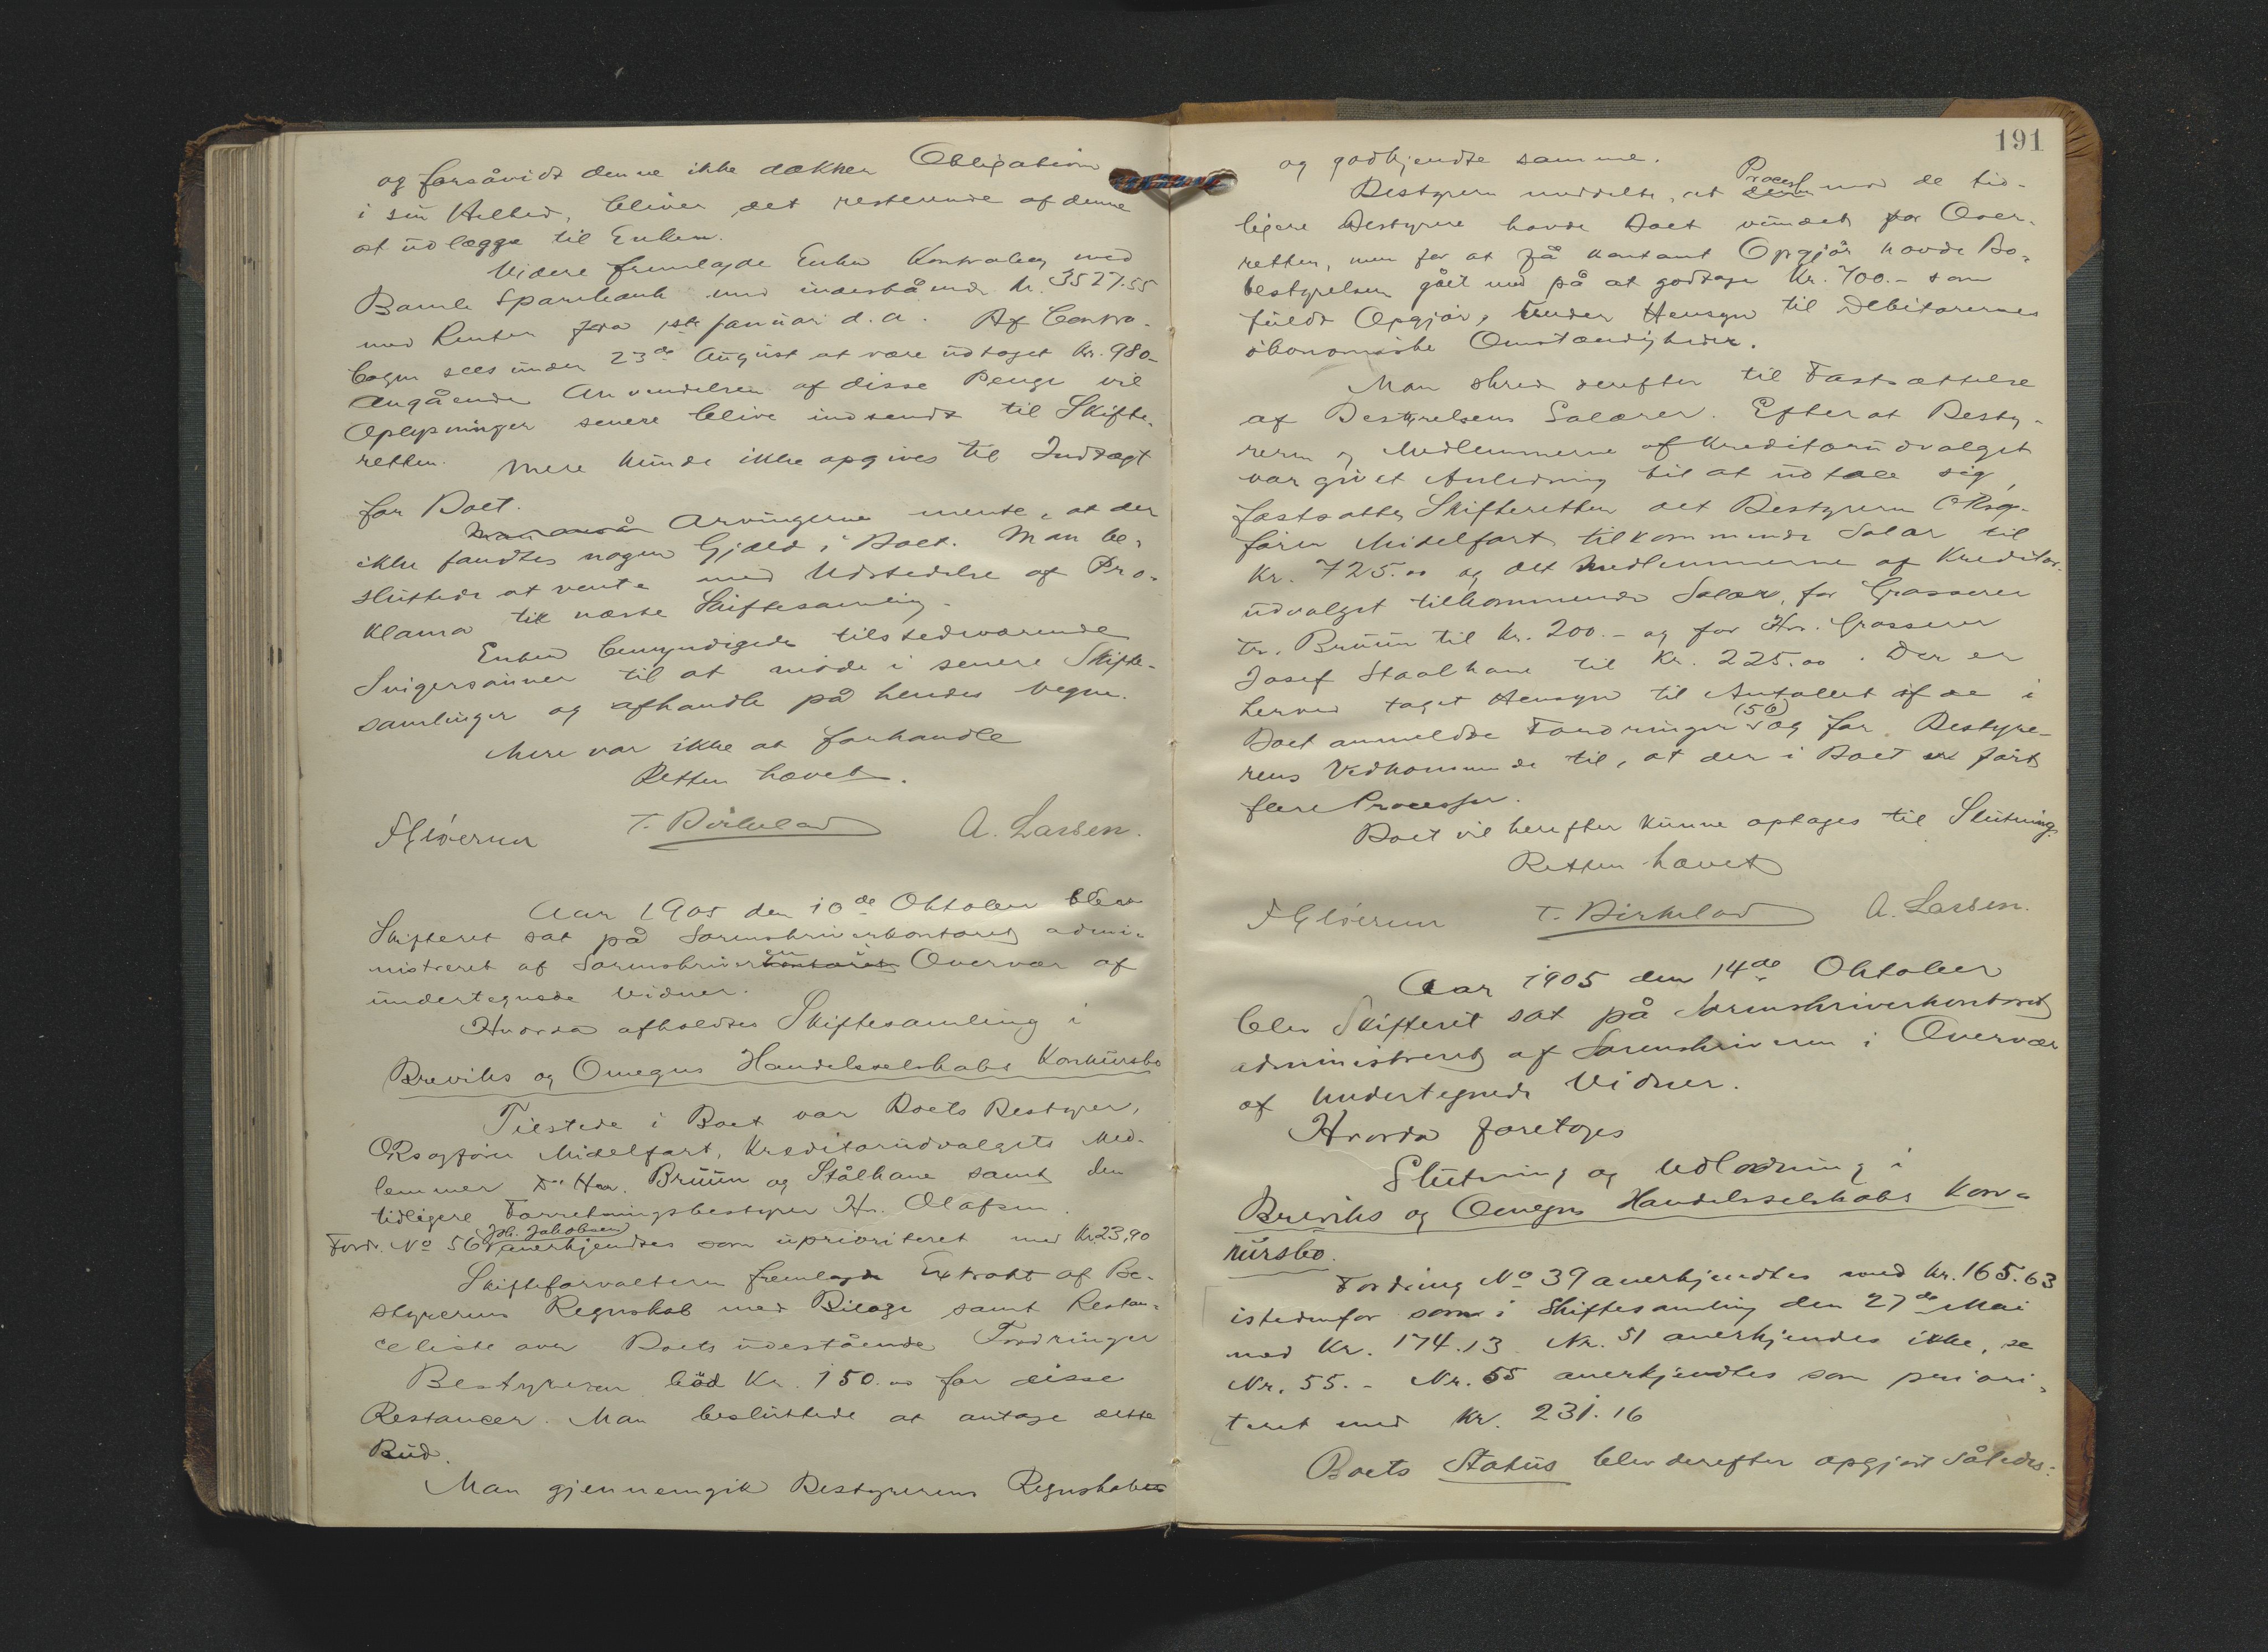 og forsåvidt denne ikke dækker Obligation
i sin Helhed, bliver det resterende af denne
at üdlægge til Enken.
Videre fremlagde Enken Kontrabog med
Bamle Sparebank med indestående kr. 3527.55
med Renter fra 1ste Januar d.a. Af Contra-
bogen sees ünder 23de August at være üdtaget kr. 980-
Angående Anvendelsen af disse Penge vil
Oplysninger senere blive indsendt til Skifte-
retten. Mere künde ikke opgives til Indtægt
for Boet.
Arvingerne mente, at der
ikke fandtes nogen Gjæld i Boet. Man be-
sluttede at vente med Udstedelse af Pro-
klama til næste Skiftesamling.
Enken bemyndigede tilstedeværende
Svigersønner til at møde i senere Skifte-
samlinger og afhandle på hendes Vegne.
Mere var ikke at forhandle
Retten hævet.
T. Birkelad A. Larsen.
Aar 1905 den 10de Oktober blev
Skifteret sat på Sorenskriverkontoret admi-
nistreret af Sorenskriveren i Overvær af
ündertegnede Vidner.
Hvorda afholdtes Skiftesamling i
Breviks og Omegns Handelsselskabs Konkürsbo
Tilstede i Boet var Boets Bestyrer,
ORsagfører Midelfart, Kreditorüdvalgets Med-
lemmer Brüün og Stålhane samt den
tidligere Forretningsbestyrer Hr. Olafsen.
Joh. Jakobsen
Fordr. No 56 anerkjendtes som üprioriteret med Kr. 23,90
Skifteforvalteren fremlagde Extrakt af Be-
styrerens Regnskab med Bilage samt Restan-
celiste over Boets üdestående Fordringer
Bestyreren bød Kr. 150.00 for disse
Restancer. Man beslüttede at antage dette
Büd.
Man gjennemgik Bestyrerens Regnskaber
191
og godkjendte samme.
Proces
Bestyreren meddelte, at mod de tid-
ligere Bestyrere havde Boet vündet for Over-
retten, men for at få kontant Opgjør havde Bo-
bestyrelsen gået med på at godtage Kr. 700.- som
füldt Opgjør, ünder Hensyn til Debitorernes
økonomiske Omstændigheder.
Man skred derefter til Fastsættelse
af Bestyrelsens Salærer. Efter at Besty-
reren og Medlemmerne af Kreditorüdvalget
var givet Anledning til at üdtale sig,
fastsatte Skifteretten det Bestyreren ORsag-
fører Midelfart tilkommende Salær til
Kr. 725.00 og det Medlemmerne af Kreditor-
üdvalget tilkommende Salær, for Grosserer
Fr. Brüün til Kr. 200.- og for Hr. Grosserer
Josef Staalhane til Kr. 225.00. Der er
herved taget Hensyn til Antallet af de i
(56)
Boet anmeldte Fordringer og for Bestyre-
rens Vedkommende til, at der i Boet er ført
flere Processer.
Boet vil herefter künne optages til Slütning.
Retten hævet
T. Birkelad A. Larsen.
Aar 1905 den 14de Oktober
blev Skifteret sat på Sorenskriverkontoret
administreret af Sorenskriveren i Overvær
af ündertegnede Vidner.
Hvorda foretoges
Slütning og Udlodning i
Breviks og Omegns Handelsselskabs Kon-
kürsbo.
Fordring No 39 anerkjendtes med kr. 165.63
istedenfor som i Skiftesamling den 27de Mai
med Kr. 174.13. Nr. 51 anerkjendes ikke, se
Nr. 55.- Nr. 55 anerkjendtes som priori-
teret med Kr. 231.16
Boets Statüs blev derefter opgjort således: